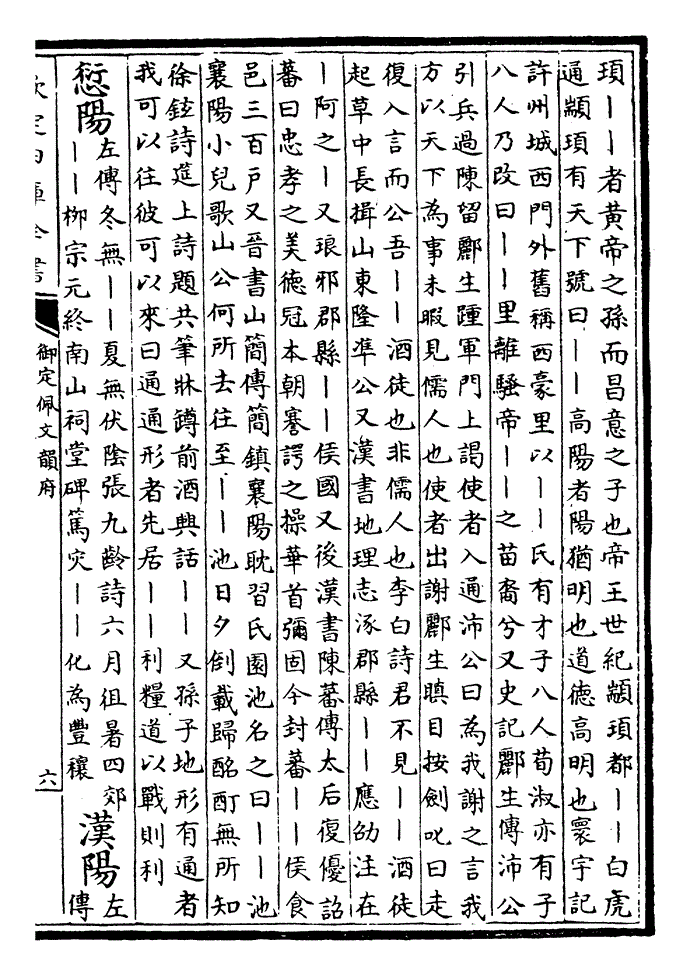 頊——者黄帝之孫而昌意之子也帝王世紀顓頊都——白虎
通顓頊有天下號曰——高陽者陽猶明也道德高明也寰宇記
許州城西門外舊稱西豪里以——氏有才子八人荀淑亦有子
八人乃改曰——里離騷帝——之苗裔兮又史記酈生傳沛公
引兵過陳留酈生踵軍門上謁使者入通沛公曰為我謝之言我
方以天下為事未暇見儒人也使者出謝酈生瞋目按劍叱曰走
復入言而公吾——酒徒也非儒人也李白詩君不見——酒徒
起草中長揖山東隆準公又漢書地理志涿郡縣——應劭注在
—阿之—又琅邪郡縣——侯國又後漢書陳蕃傳太后復優詔
蕃曰忠孝之美德冠本朝謇諤之操華首彌固今封蕃——侯食
邑三百户又晉書山簡傳簡鎮襄陽耽習氏園池名之曰——池
襄陽小兒歌山公何所去往至——池日夕倒載歸酩酊無所知
徐鉉詩筵上詩題共筆牀鐏前酒興話——又孫子地形有通者
我可以往彼可以來曰通通形者先居——利糧道以戰則利
愆陽
左傳冬無——夏無伏陰張九齡詩六月徂暑四郊
——栁宗元終南山祠堂碑篤災——化為豐穰
漢陽
左
傳
欽定四庫全書
御定佩文韻府
六